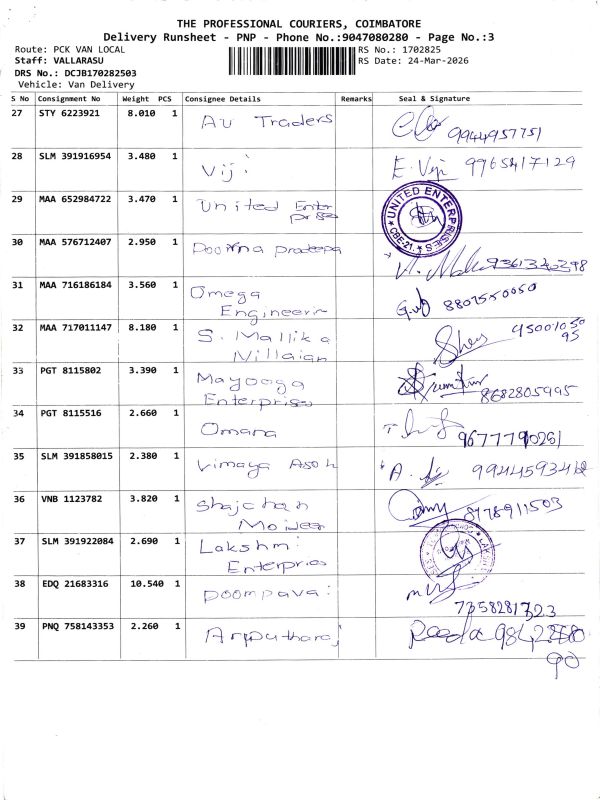 THE PROFESSIONAL COURIERS, COIMBATORE
Delivery Runsheet - PNP - Phone No.:9047080280 - Page No.:3
Route: PCK VAN LOCAL
RS No.: 1702825
Staff: VALLARASU
RS Date: 24-Mar-2026
DRS No.: DCJB170282503
Vehicle: Van Delivery
S No Consignment No Weight PCS Consignee Details Remarks Seal & Signature
27 STY 6223921 8.010 1 Au Traders 9944957751
28 SLM 391916954 3.480 1 Viji E. Viji 9965417129
29 MAA 652984722 3.470 1 United Enter
prises
UNITED ENTERPRISES
CBE-21.
30 MAA 576712407 2.950 1 Poorna pradeepa
31 MAA 716186184 3.560 1 Omega
Engineer 8807550050
32 MAA 717011147 8.180 1 S. Mallika
Nillaian
4500105095
33 PGT 8115802 3.390 1 Mayooga
Enterprises 8682805995
34 PGT 8115516 2.660 1 Omana
35 SLM 391858015 2.380 1 Vimaya Asok A.
36 VNB 1123782 3.820 1 Shajchan 8778911503
37 SLM 391922084 2.690 1 Lakshmi
Enterprises
38 EDQ 21683316 10.540 1 Poompavai
39 PNQ 758143353 2.260 1 Arputharaj